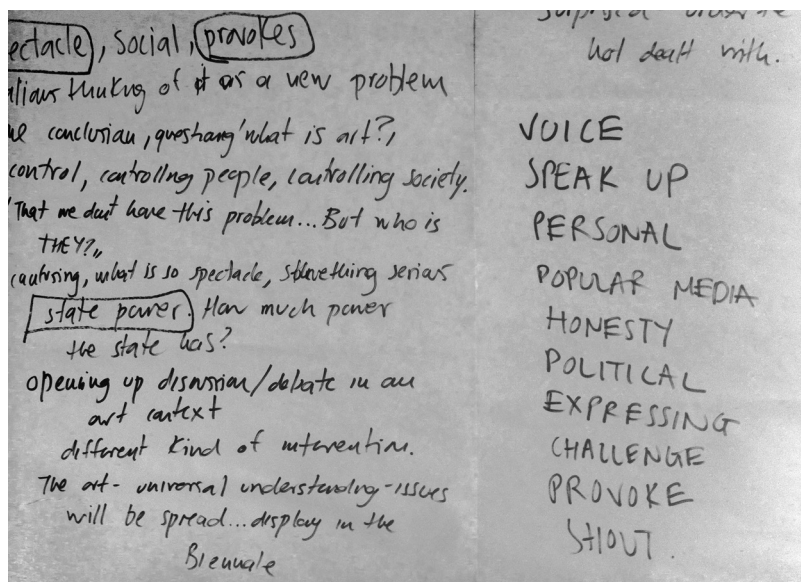 ectacle, social, provokes
thinking of it as a new problem
conclusion, 'what is art?,
control, controllng people, controlling society.
"That we dont have this problem... But who is
THEY?"
what is so spectacle, something serious
state power. How much power
the state has?
opening up discussion/debate in an
art context
different kind of intervention.
The art - universal understanding - issues
will be spread... display in the
Biennale
not dealt with.
VOICE
SPEAK UP
PERSONAL
POPULAR MEDIA
HONESTY
POLITICAL
EXPRESSING
CHALLENGE
PROVOKE
SHOUT.